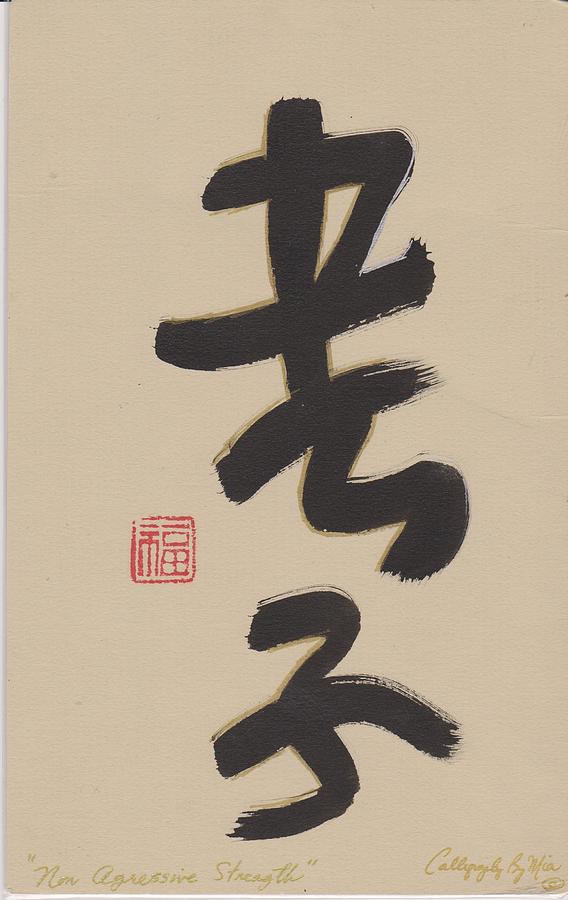 老子
福
"Non Agressive Strength"
Calligraphy By Mia ©